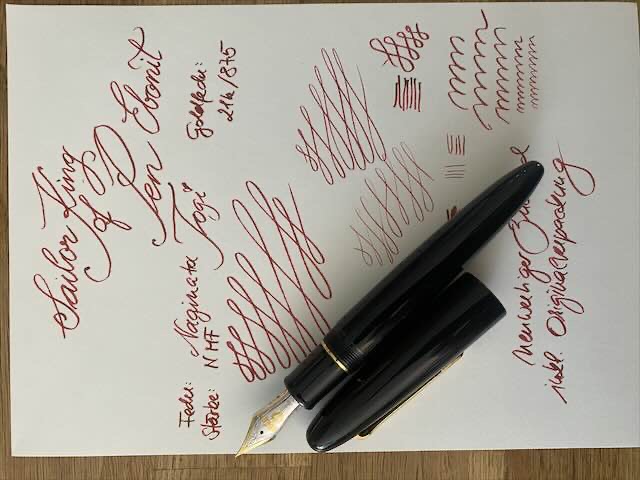 Sailor King
of Pen Ebonit
Feder: Naginata Togi
Stärke: NMF
Goldfeder:
21k/875
Neuwertiger
inkl. Originalverpackung